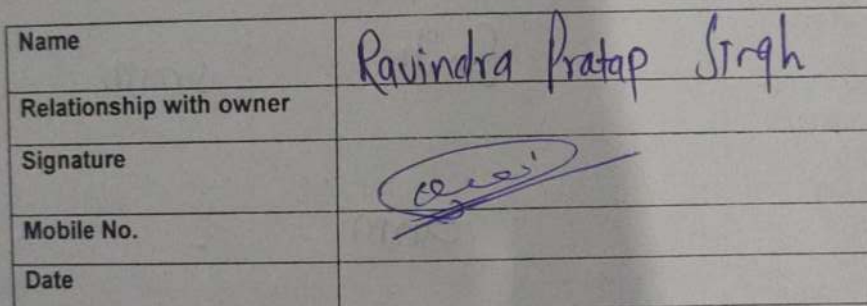 Name Ravindra Pratap Singh
Relationship with owner
Signature
Mobile No.
Date